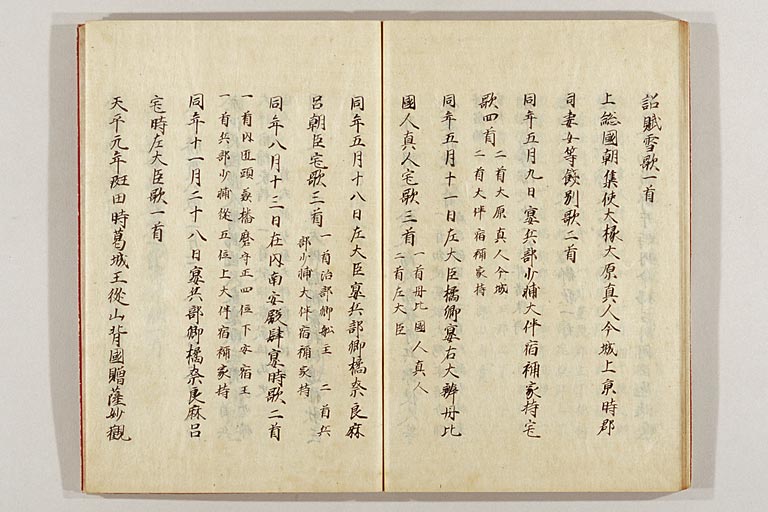 詔賦雪歌一首
上総國朝集使大掾大原真人今城上京時郡
司妻女等餞別歌二首
同年五月九日宴兵部少輔大伴宿祢家持宅
歌四首 二首大原真人今城
二首大伴宿祢家持
同年五月十一日左大臣橘卿宴右大辨丹比
國人真人宅歌三首 一首丹比國人真人
二首左大臣
同年五月十八日左大臣宴兵部卿橘奈良麻
呂朝臣宅歌三首 一首治部卿船王 二首兵
部少輔大伴宿祢家持
同年八月十三日在内南安殿肆宴時歌二首
一首内匠頭兼播磨守正四位下安宿王
一首兵部少輔從五位上大伴宿祢家持
同年十一月二十八日宴兵部卿橘奈良麻呂
宅時左大臣歌一首
天平元年班田時葛城王從山背國贈薩妙觀